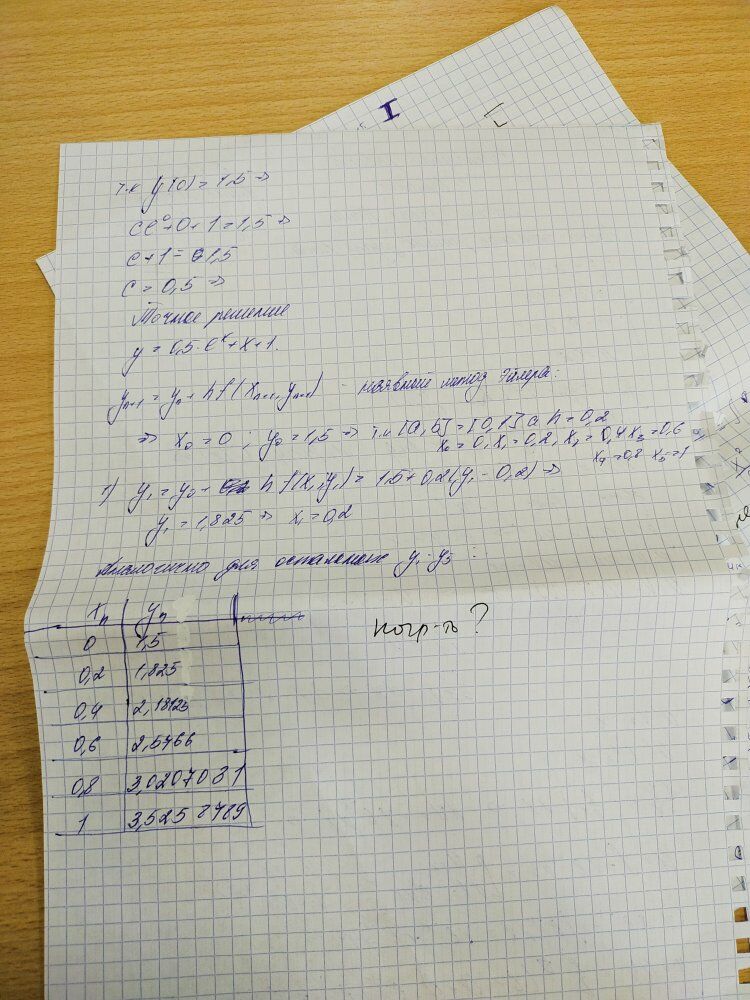 I
т.к y(0) = 1,5 ⇒
ce⁰+0+1=1,5 ⇒
c+1=1,5
c=0,5 ⇒
Точное решение
y = 0,5·e^x+x+1.
yₙ₊₁ = yₙ + h f(xₙ₊₁, yₙ₊₁) - неявный метод Эйлера:
⇒ x₀ = 0, y₀ = 1,5 ⇒ т.к [a,b] = [0,1] а h = 0,2
x₀ = 0, x₁ = 0,2, x₂ = 0,4 x₃ = 0,6
x₄=0,8 x₅=1
1) y₁ = y₀ + h f(x₁, y₁) = 1,5+0,2(y₁ - 0,2) ⇒
y₁ = 1,825 ⇒ x₁ = 0,2
Аналогично для остальных y₁-y₅ :
xₙ yₙ
0 1,5
0,2 1,825
0,4 2,18125
0,6 2,5766
0,8 3,0207031
1 3,5258789
погр-ть?